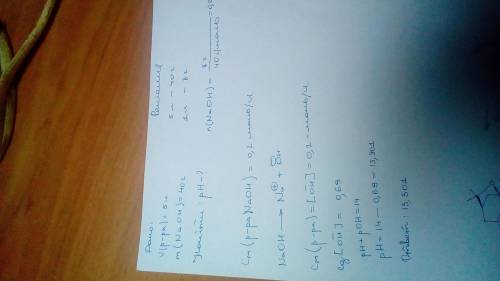 Дано:
V(р-ра) = 5 л
m(NaOH) = 40 г
Найти: pH - ?
Решение
5 л — 40 г
1 л — 8 г
n(NaOH) = 8 г / 40 г/моль = 0,2
Cm(р-ра NaOH) = 0,2 моль/л
NaOH ⟶ Na⊕ + O̅H
Cm(р-ра) = [O̅H] = 0,2 моль/л
lg[O̅H] = 0,69
pH + pOH = 14
pH = 14 - 0,69 = 13,301
Ответ: 13,301